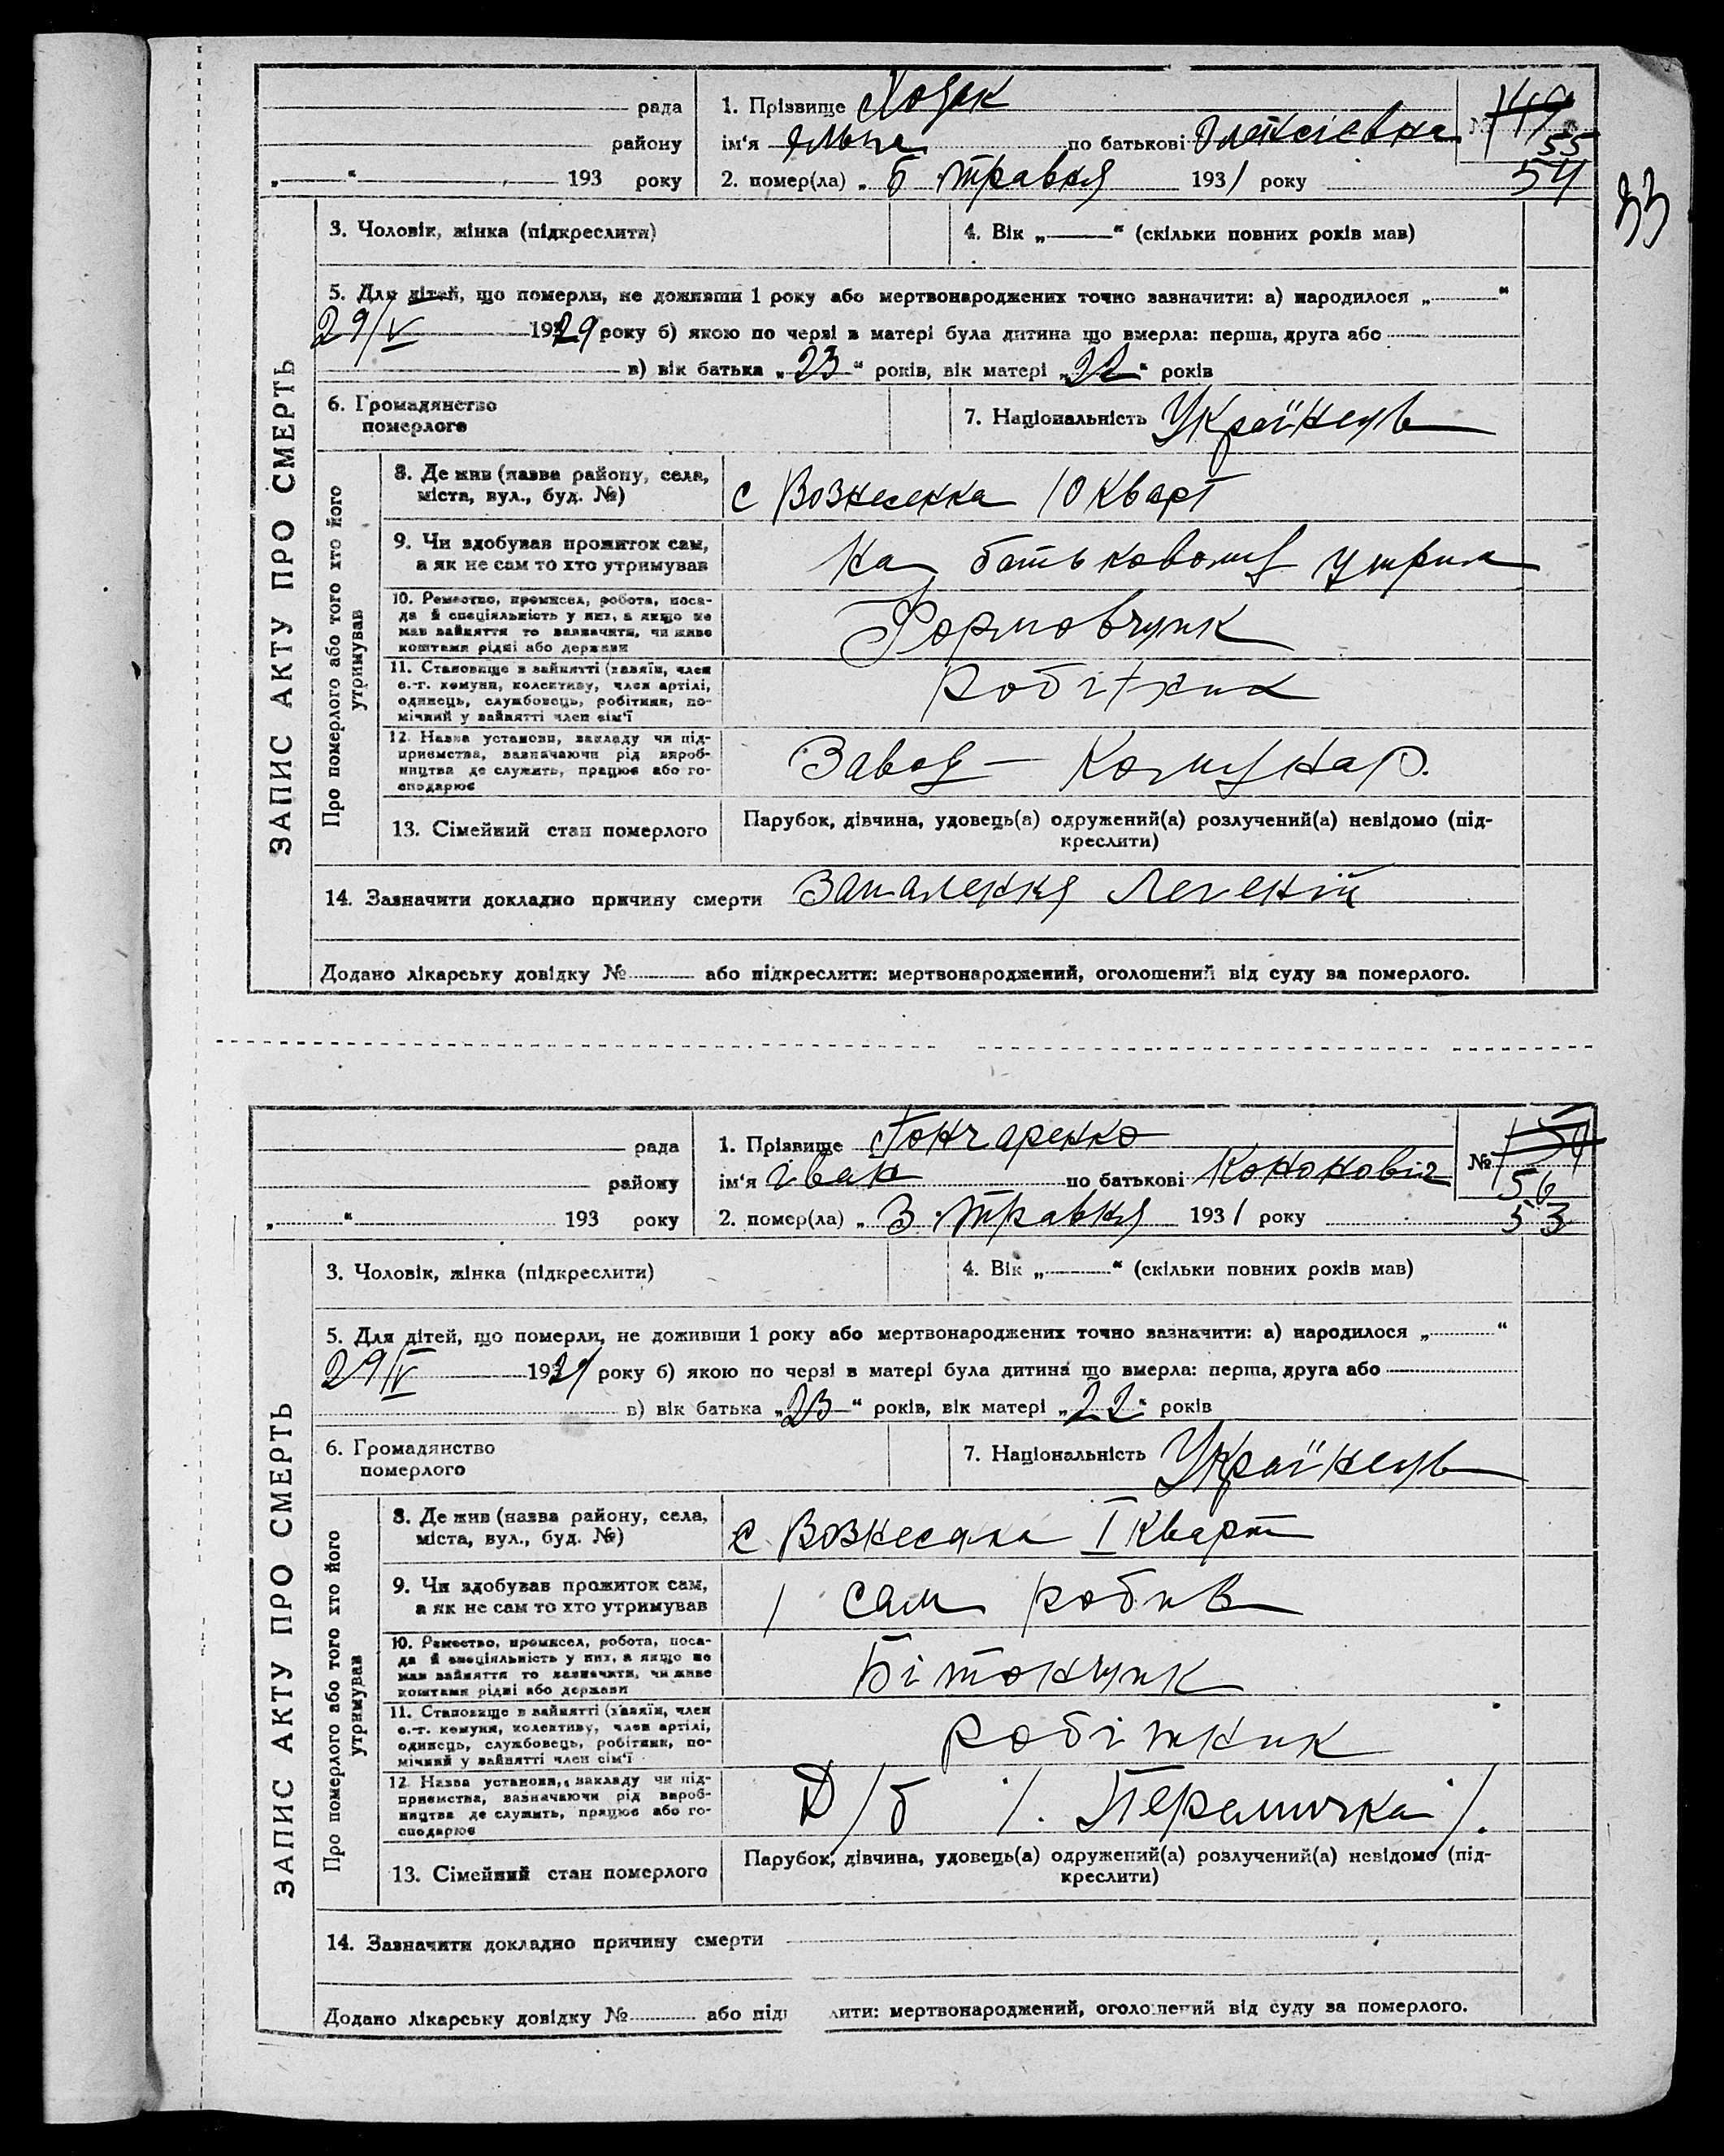 рада
1. Прізвище
№ 149
55
району
ім'я
по батькові Олексієвна
„ “ 193 року
2. помер(ла) „ 6 травня 1931 року
54
33
3. Чоловік, жінка (підкреслити)
4. Вік „ “ (скільки повних років мав)
5. Для дітей, що померли, не доживши 1 року або мертвонароджених точно зазначити: а) народилося „ “
29/V 1929 року б) якою по черзі в матері була дитина що вмерла: перша, друга або
в) вік батька „23“ років, вік матері „22“ років
6. Громадянство
померлого
7. Національність Українець
ЗАПИС АКТУ ПРО СМЕРТЬ
Про померлого або того хто його
утримував
8. Де жив (назва району, села,
міста, вул., буд. №)
с Вознесенка 10 Кварт
9. Чи здобував прожиток сам,
а як не сам то хто утримував
На батьковому утрим
10. Ремество, промисел, робота, поса-
да й спеціяльність у них, а якщо не
мав зайняття то зазначити, чи живе
коштами рідні або держави
Формовчик
11. Становище в зайнятті (хазяїн, член
с.-г. комуни, колективу, член артілі,
одинець, службовець, робітник, по-
мічний у зайнятті член сім'ї
робітник
12. Назва установи, закладу чи під-
приємства, зазначаючи рід вироб-
ництва де служить, працює або го-
сподарює
Завод – Комунар.
13. Сімейний стан померлого
Парубок, дівчина, удовець(а) одружений(а) розлучений(а) невідомо (під-
креслити)
14. Зазначити докладно причину смерти Запалення Легеній
Додано лікарську довідку № або підкреслити: мертвонароджений, оголошений від суду за померлого.
рада
1. Прізвище Гончаренко
№ 150
56
району
ім'я Іван
по батькові Кононовіч
„ “ 193 року
2. помер(ла) „ 3 травня 1931 року
53
3. Чоловік, жінка (підкреслити)
4. Вік „ “ (скільки повних років мав)
5. Для дітей, що померли, не доживши 1 року або мертвонароджених точно зазначити: а) народилося „ “
29/IV року б) якою по черзі в матері була дитина що вмерла: перша, друга або
в) вік батька „23“ років, вік матері „22“ років
6. Громадянство
померлого
7. Національність Українець
ЗАПИС АКТУ ПРО СМЕРТЬ
Про померлого або того хто його
утримував
8. Де жив (назва району, села,
міста, вул., буд. №)
с I Кварт
9. Чи здобував прожиток сам,
а як не сам то хто утримував
сам робив
10. Ремество, промисел, робота, поса-
да й спеціяльність у них, а якщо не
мав зайняття то зазначити, чи живе
коштами рідні або держави
Бітончик
11. Становище в зайнятті (хазяїн, член
с.-г. комуни, колективу, член артілі,
одинець, службовець, робітник, по-
мічний у зайнятті член сім'ї
робітник
12. Назва установи, закладу чи під-
приємства, зазначаючи рід вироб-
ництва де служить, працює або го-
сподарює
Д/б /. Перемичка /.
13. Сімейний стан померлого
Парубок, дівчина, удовець(а) одружений(а) розлучений(а) невідомо (під-
креслити)
14. Зазначити докладно причину смерти
Додано лікарську довідку № або підк лити: мертвонароджений, оголошений від суду за померлого.